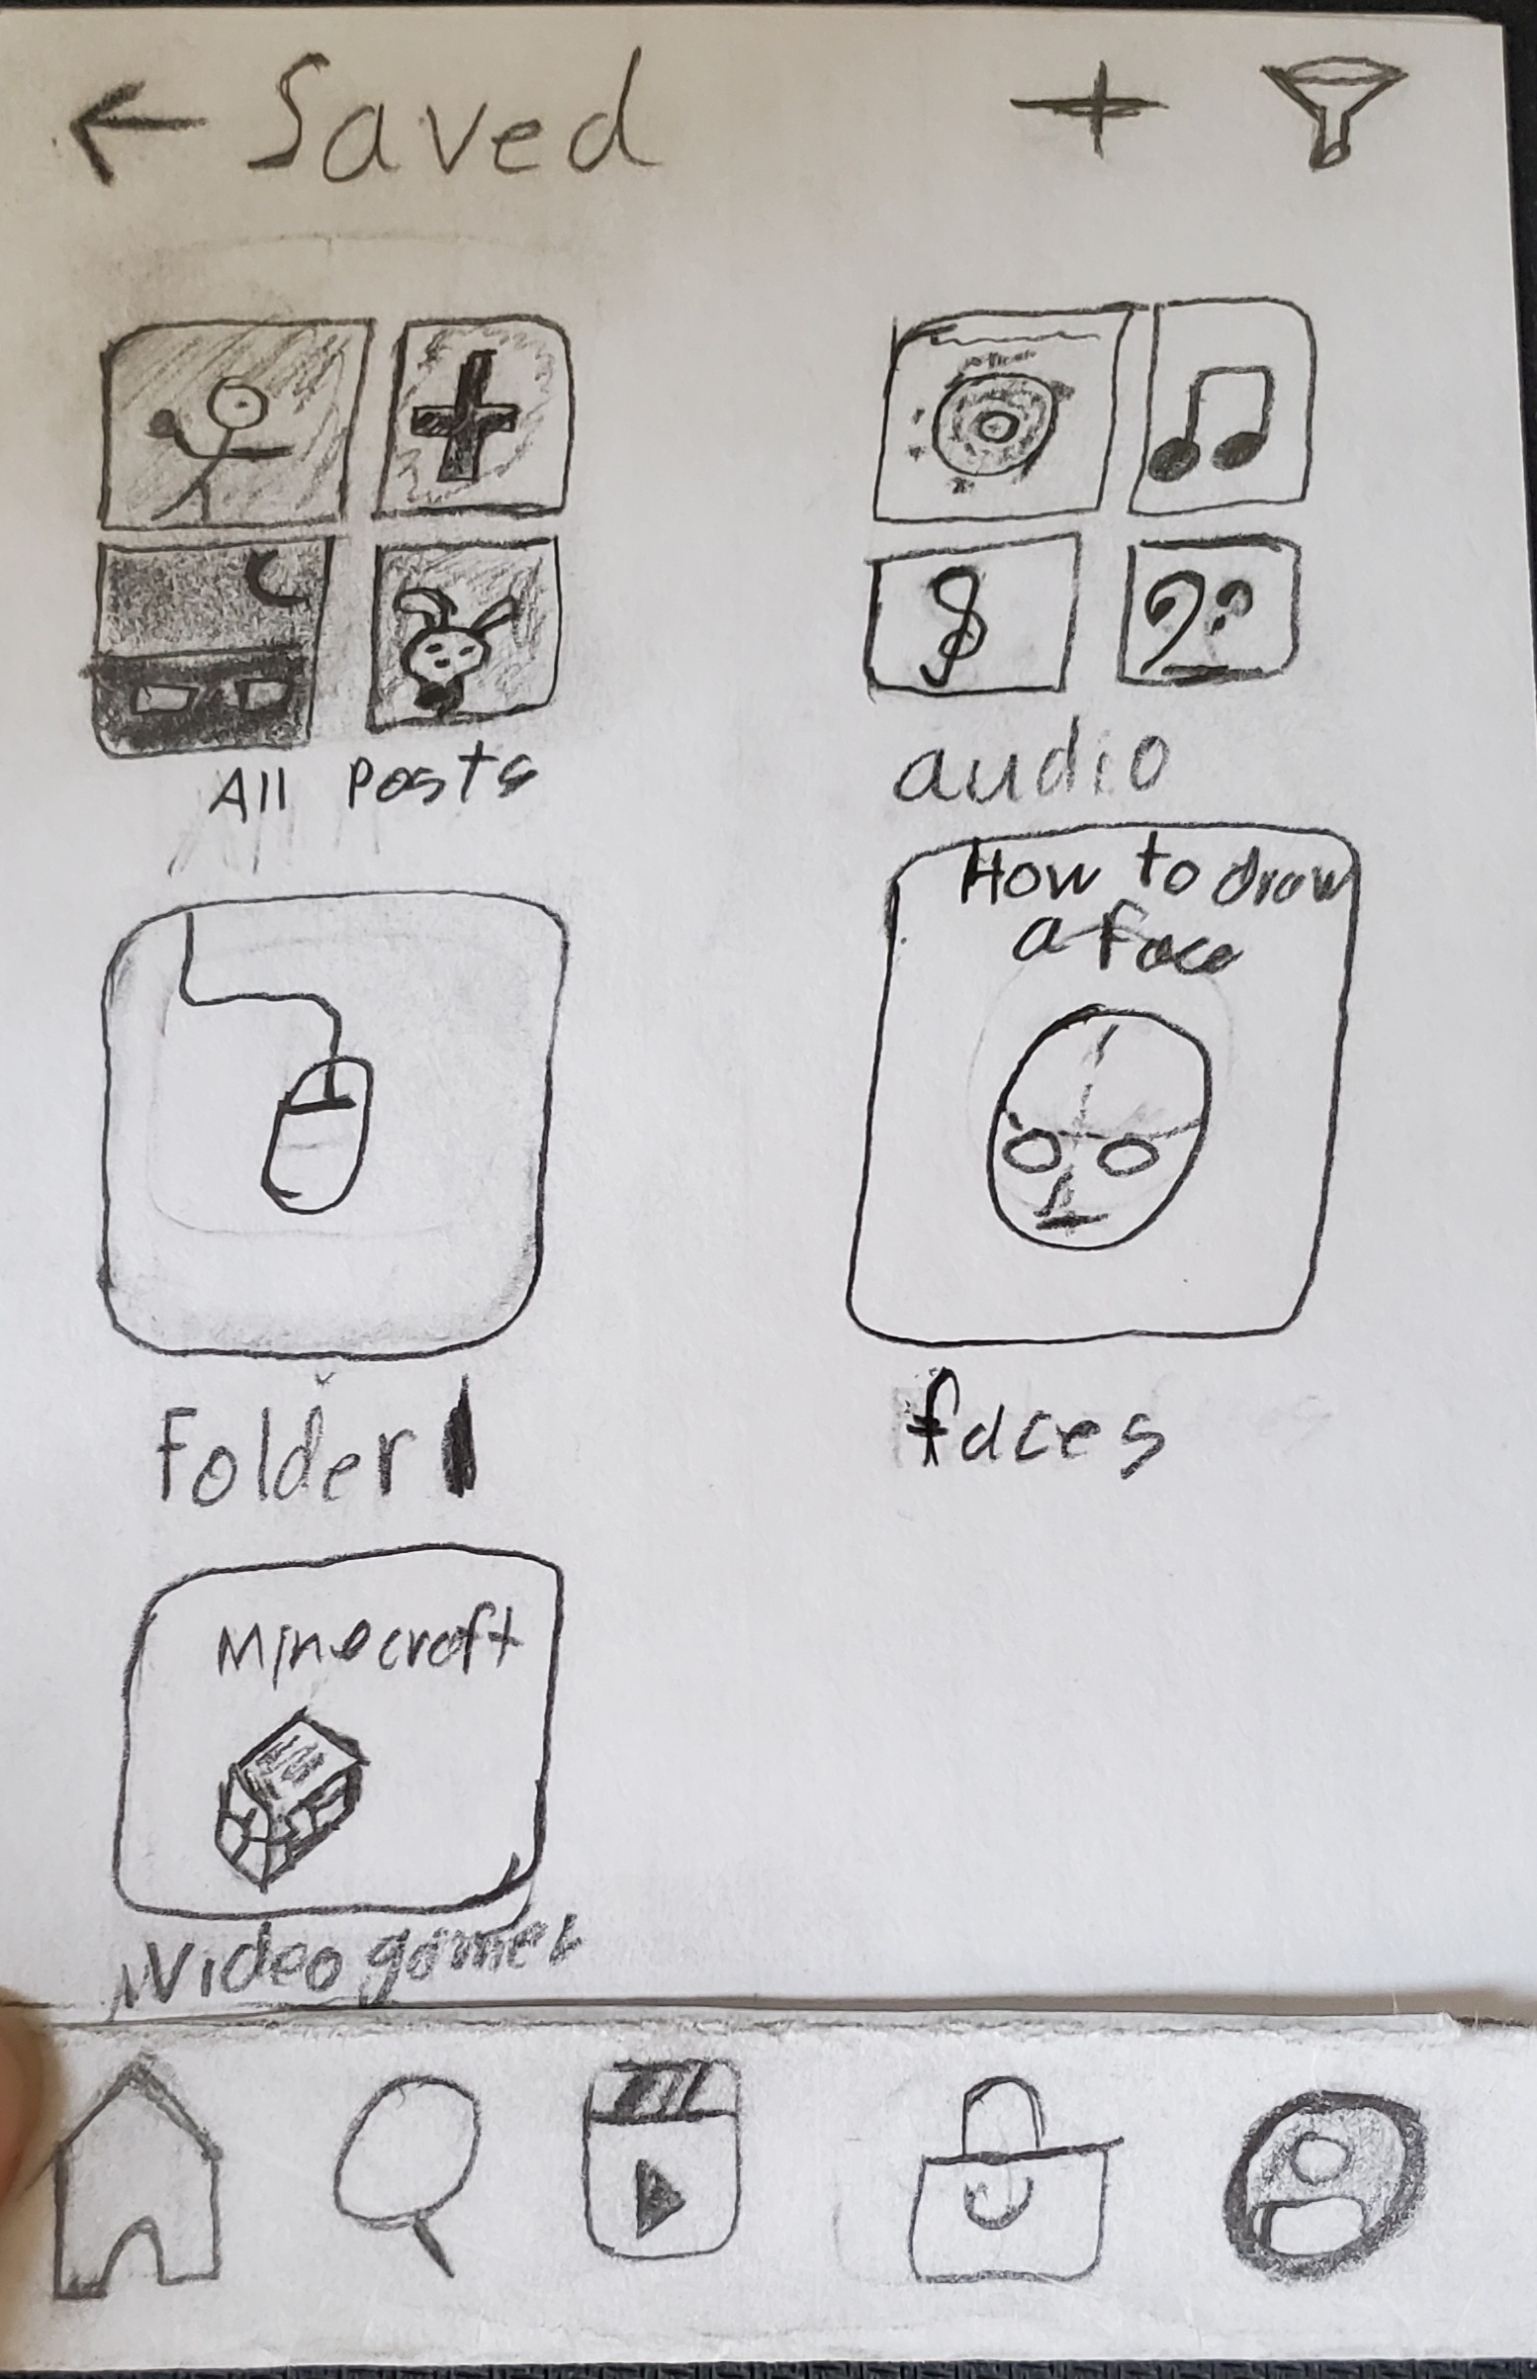 Saved
All Posts
audio
How to draw
a face
Folder 1
faces
Minecraft
Video games